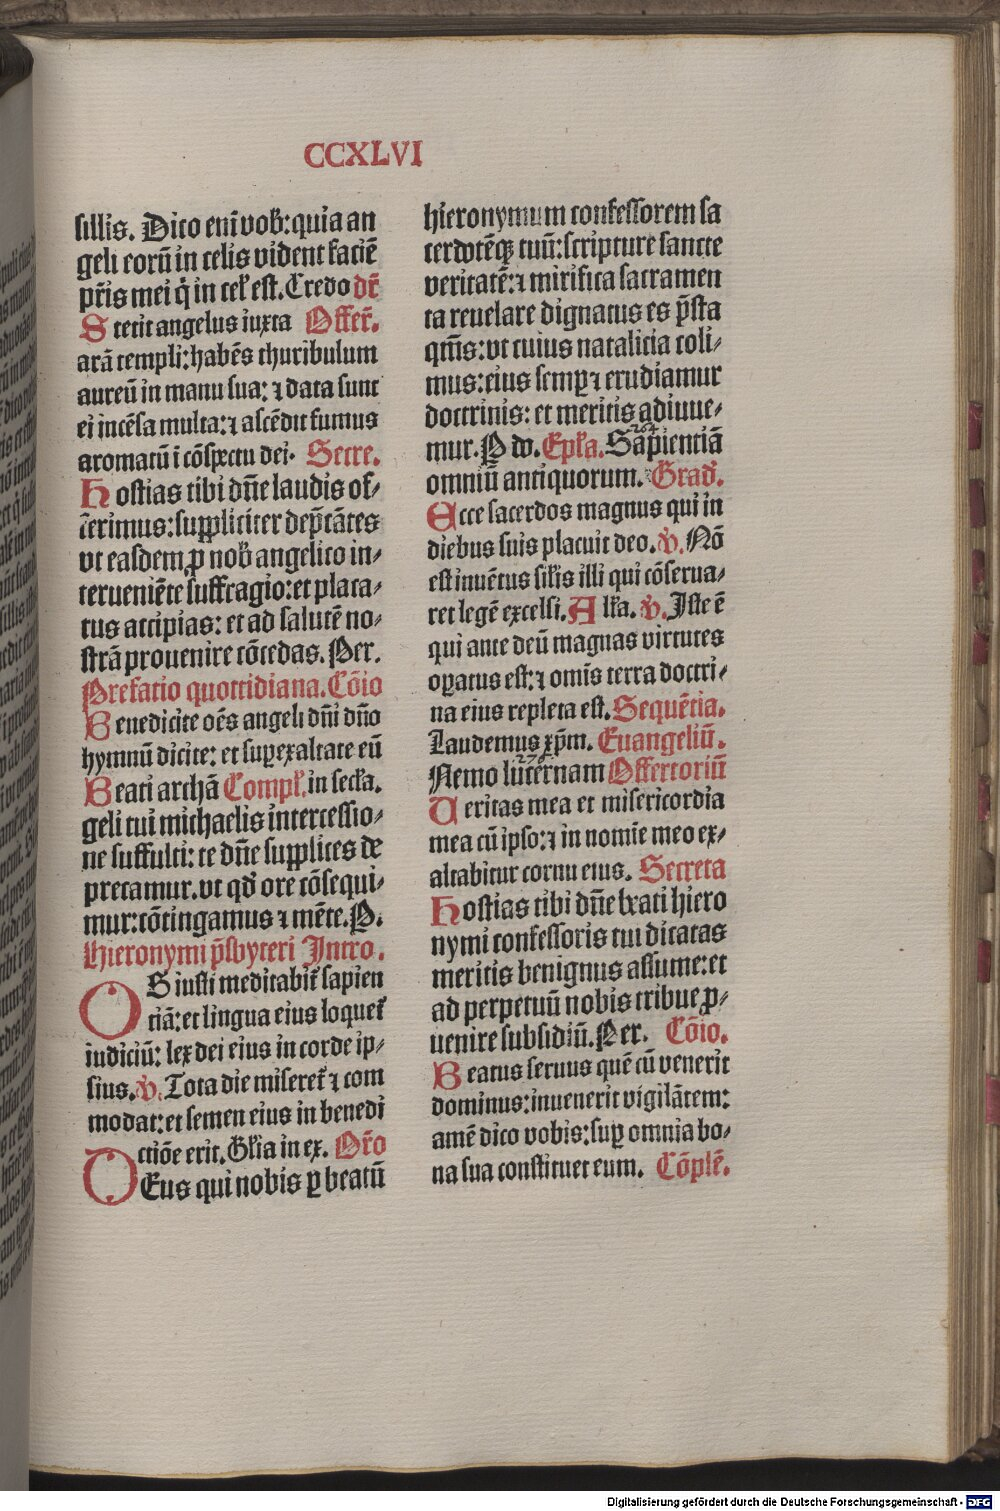 CCXLVI
sillis. Dico eni̅ vob̛: quia an
geli eoru̅ in celis vident facie̅
pr̅is mei q̇ in cel̛ est. Credo dr̅
Stetit angelus iuxta Offer̅.
ara̅ templi: habe̅s thuribulum
aureu̅ in manu sua: ⁊ data sunt
ei ince̅sa multa: ⁊ asce̅dit fumus
aromatu̅ i̅ co̅spectu dei. Secre.
Hostias tibi dn̅e laudis of⸗
ferimus: suppliciter dep̅ca̅tes
vt easdem ꝑ nob̛ angelico in⸗
terueni̅e̅te suffragio: et placa⸗
tus accipias: et ad salute̅ no⸗
stra̅ prouenire co̅cedas. Per.
Prefatio quottidiana. Co̅io
Benedicite oe̅s angeli dn̅i dn̅o
hymnu̅ dicite: et suꝑexaltate eu̅
Beati archa̅ Compl̛. in secl̛a.
geli tui michaelis intercessio⸗
ne suffulti: te dn̅e supplices de
precamur. vt qd̛ ore co̅sequi⸗
mur: co̅tingamus ⁊ me̅te. P.
Hieronymi p̅sbyteri Intro.
OS iusti meditabit̛ sapien
tia̅: et lingua eius loquet̛
iudiciu̅: lex dei eius in corde ip⸗
sius. v̛. Tota die miseret̛ ⁊ com
modat: et semen eius in benedi
ctio̅e erit. Gl̛ia in ex. Or̅o
DEus qui nobis ꝑ beatu̅
hieronymum confessorem sa
cerdote̅qꝫ tuu̅: scripture sancte
veritate̅: ⁊ mirifica sacramen
ta reuelare dignatus es p̅sta
qm̅s: vt cuius natalicia coli⸗
mus: eius semꝑ ⁊ erudiamur
doctrinis: et meritis adiuue⸗
mur. P do. Epl̛a. Sapientia̅
omniu̅ antiquorum. Grad̛.
Ecce sacerdos magnus qui in
diebus suis placuit deo. v̛. No̅
est inue̅tus sil̛is illi qui co̅serua⸗
ret lege̅ excelsi. Al̛a. v̛. Iste e̅
qui ante deu̅ magnas virtutes
oꝑatus est: ⁊ omi̅s terra doctri⸗
na eius repleta est. Seque̅tia.
Laudemus xp̅m. Euangeliu̅.
Nemo lucernam Offertoriu̅
Ueritas mea et misericordia
mea cu̅ ipso: ⁊ in nomi̅e meo ex⸗
altabitur cornu eius. Secreta
Hostias tibi dn̅e beati hiero
nymi confessoris tui dicatas
meritis benignus assume: et
ad perpetuu̅ nobis tribue ꝓ⸗
uenire subsidiu̅. Per. Co̅io.
Beatus seruus que̅ cu̅ venerit
dominus: inuenerit vigila̅tem:
ame̅ dico vobis: suꝑ omnia bo⸗
na sua constituet eum. Co̅ple̅.
Digitalisierung gefördert durch die Deutsche Forschungsgemeinschaft - DFG